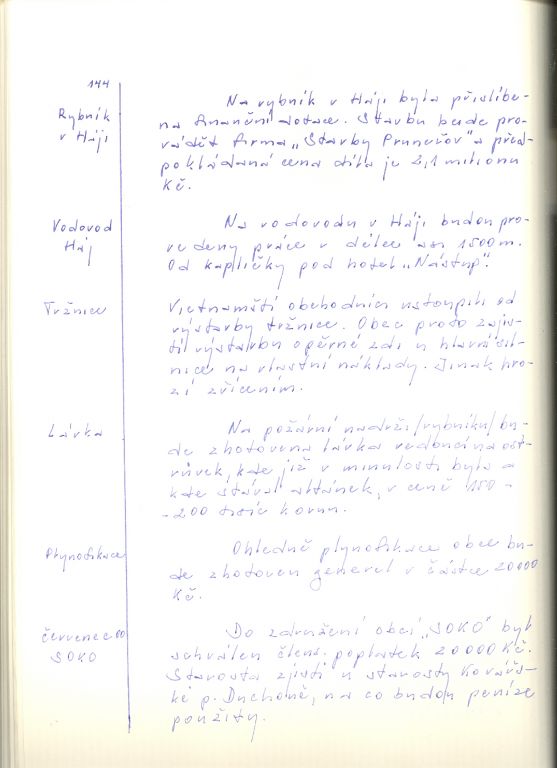 144
Rybník
v Háji
Na rybník v Háji byla přislíbe-
na finanční dotace. Stavbu bude pro-
vádět firma „Stavby Prunéřov" a před-
pokládaná cena díla je 2,1 milionu
Kč.
Vodovod
Háj
Na vodovodu v Háji budou pro-
vedeny práce v délce asi 1500m.
Od kapličky pod hotel „Nástup".
Tržnice
Vietnamští obchodníci ustoupili od
výstavby tržnice. Obec proto zajis-
tí výstavbu opěrné zdi u hlavní sil-
nice na vlastní náklady. Jinak hro-
zí zřícením.
Lávka
Na požární nádrži /rybníku/ bu-
de zhotovena lávka vedoucí na ost-
růvek, kde již v minulosti byla a
kde stával altánek, v ceně 150-
-200 tisíc korun.
Plynofikace
Ohledně plynofikace obce bu-
de zhotoven generel v částce 20000
Kč.
červenec 00
SOKO
Do združení obcí „SOKO" byl
schválen člens. poplatek 20000 Kč.
Starosta zjistí u starosty Kovářs-
ké p. Duchoně, na co budou peníze
použity.